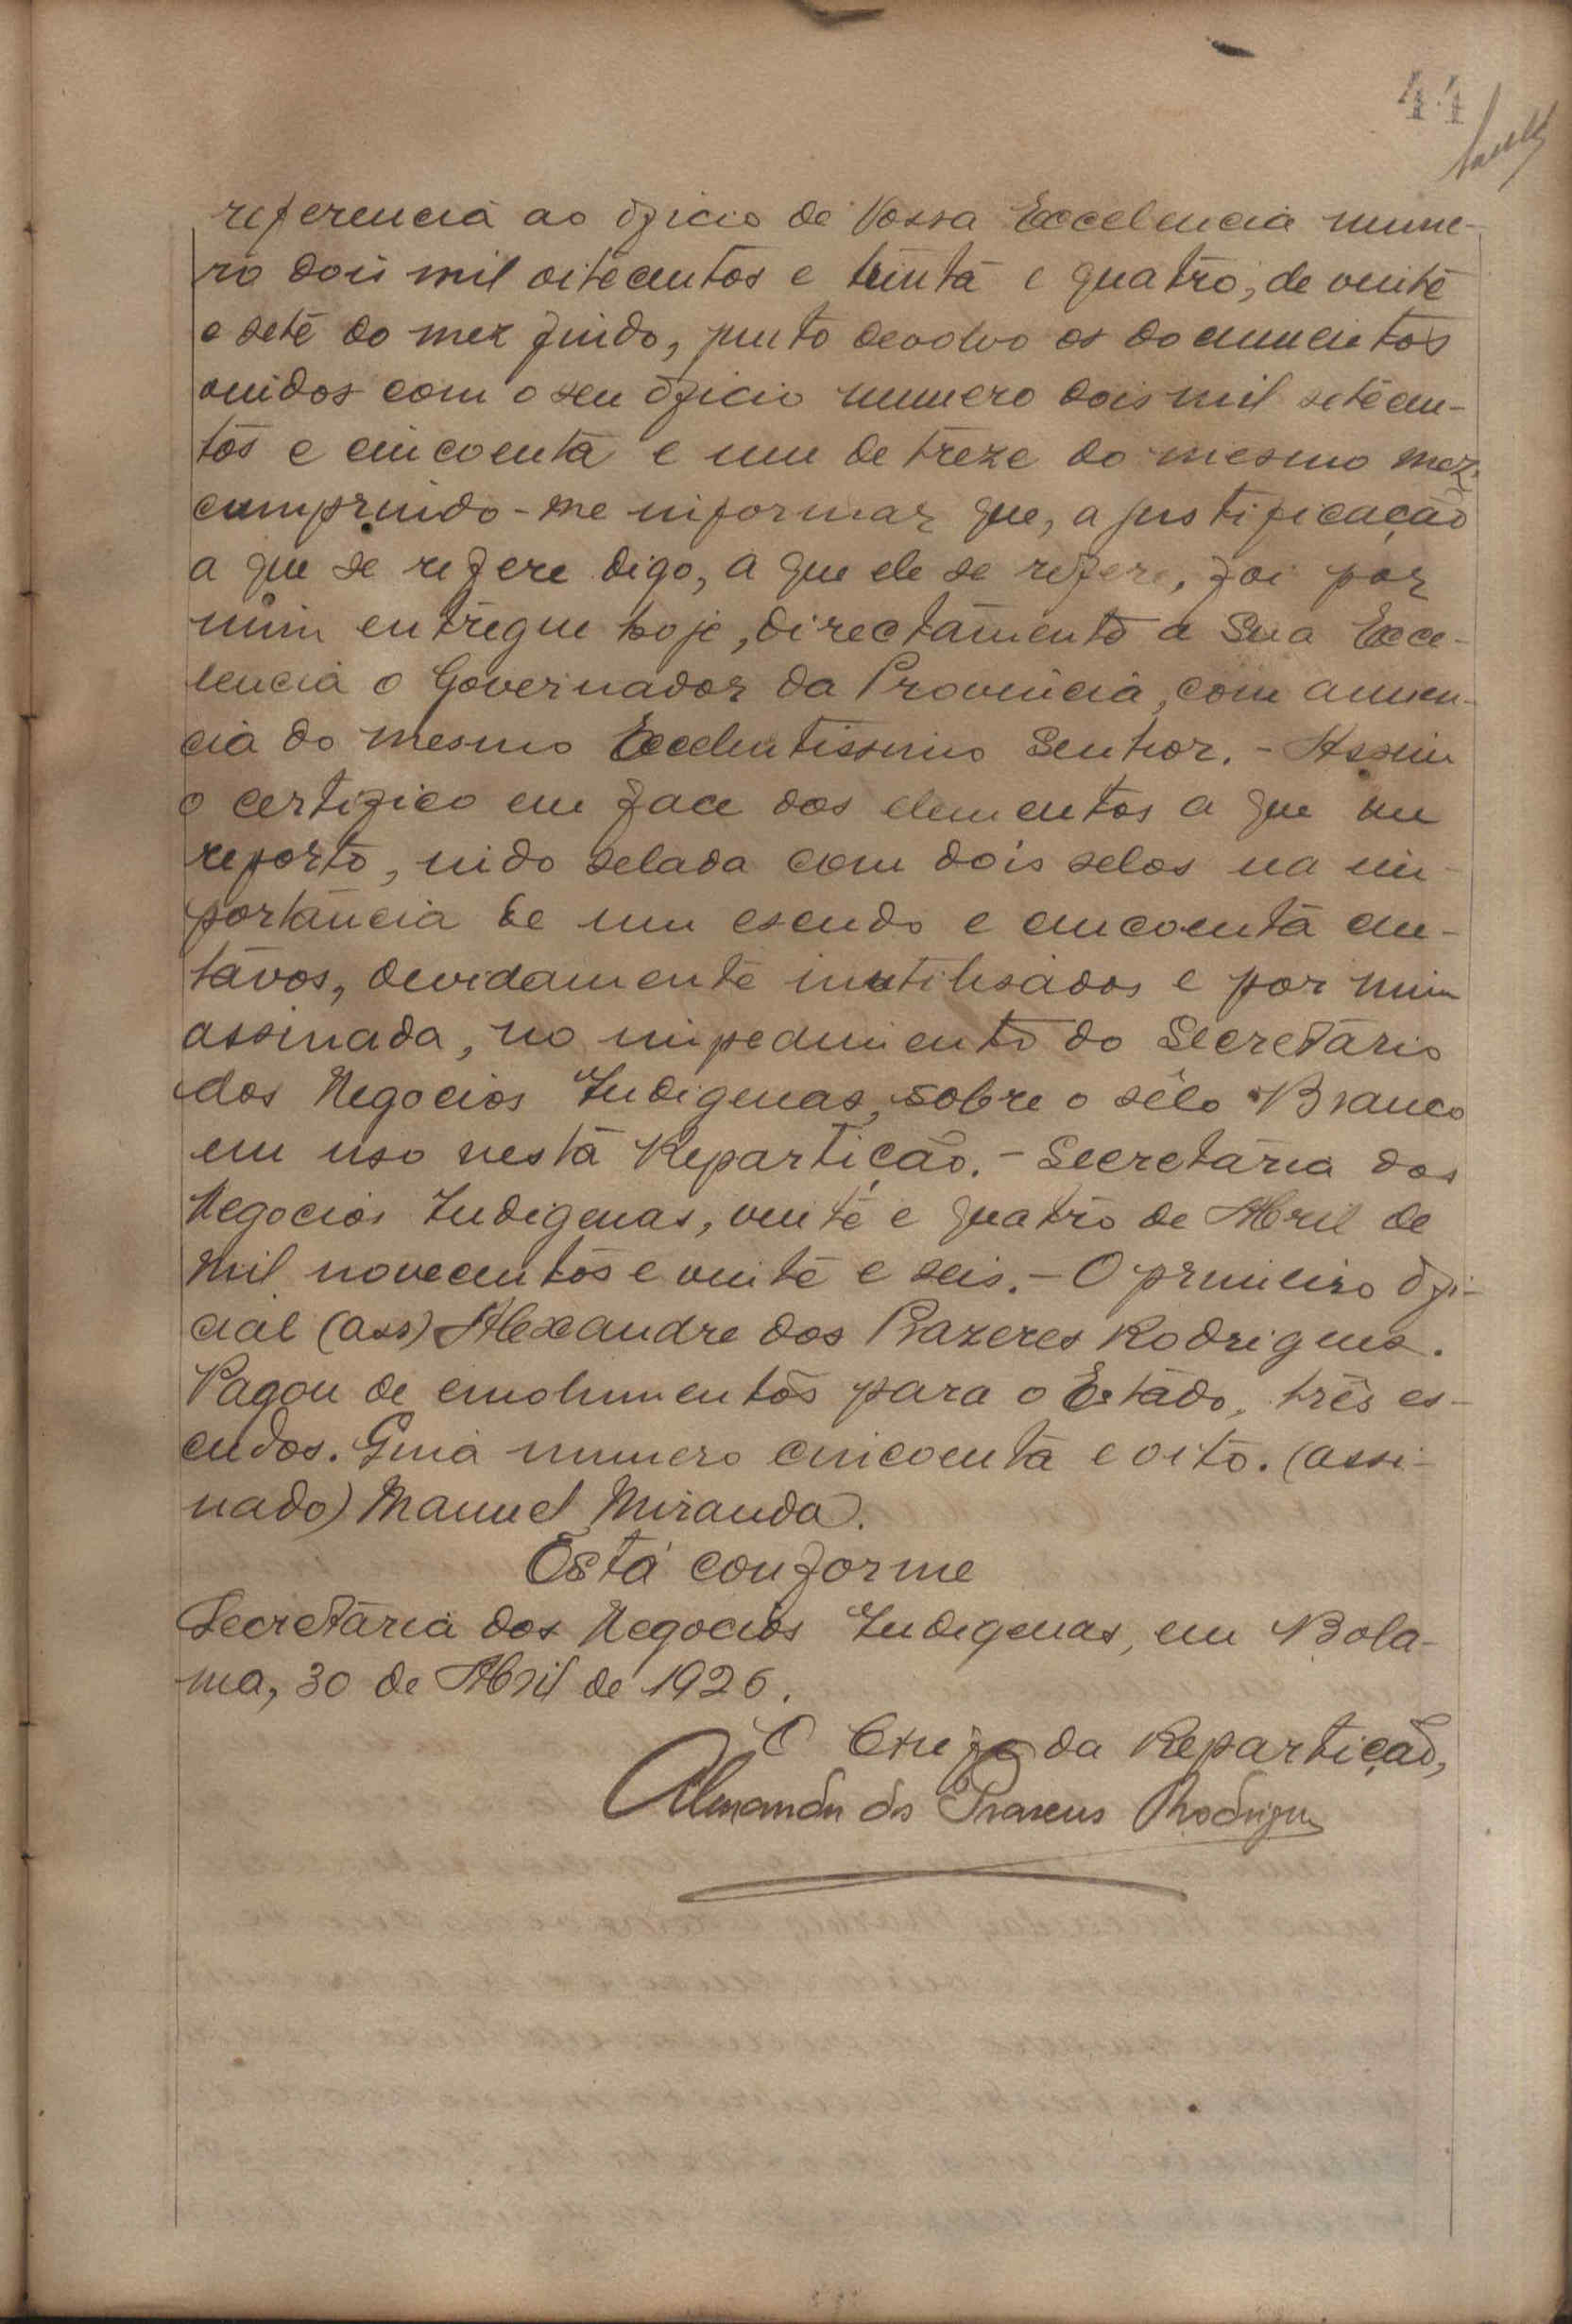 44
referencia ao oficio de Vossa Excelencia nume-
ro dois mil oitocentos e trinta e quatro, de vinte
e sete do mez findo, junto devolvo os documentos
vindos com o seu oficio numero dois mil setecen-
tos e cincoenta e um de treze do mesmo mez,
cumprindo-me informar que, a justificação
a que se refere digo, a que ele se refere, foi por
mim entregue hoje, directamente a Sua Exce-
lencia o Governador da Provincia, com anuen-
cia do mesmo Excelentissimo Senhor. - Assim
o certifico em face dos elementos a que me
reporto, indo selada com dois selos na im-
portancia de um escudo e cincoenta cen-
tavos, devidamente inutilisados e por mim
assinada, no impedimento do Secretário
dos Negocios Indigenas, sobre o sêlo Branco
em uso nesta Repartição. - Secretaria dos
Negocios Indigenas, vinte e quatro de Abril de
mil novecentos e vinte e seis. - O primeiro ofi-
cial (ass) Alexandre dos Prazeres Rodrigues.
Pagou de emolumentos para o Estado, três es-
cudos. Guia numero cincoenta e oito. (assi-
nado) Manuel Miranda.
Está conforme
Secretaria dos Negocios Indigenas, em Bola-
ma, 30 de Abril de 1926.
O Chefe da Repartição,
Alexandre dos Prazeres Rodrigues